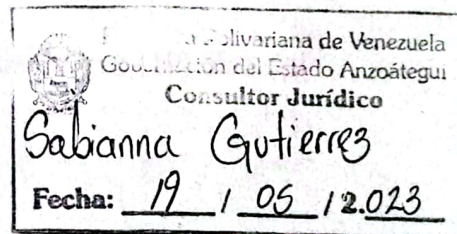 olivariana de Venezuela
del Estado Anzoátegui
Consultor Jurídico
Sabianna Gutierrez
Fecha: 19 / 05 / 2.023